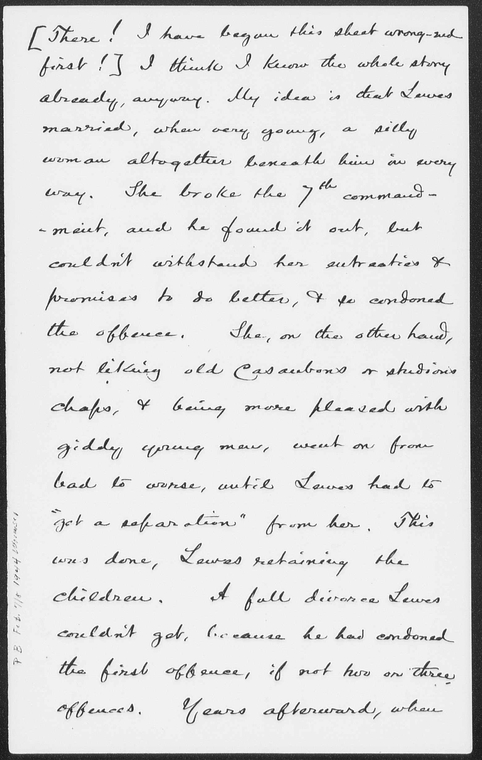 [There! I have begun this sheet wrong-end
first!] I think I know the whole story
already, anyway. My idea is that Lewes
married, when very young, a silly
woman altogether beneath him in every
way. She broke the 7th command-
-ment, and he found it out, but
couldn't withstand her entreaties &
promises to do better, & so condoned
the offence. She, on the other hand,
not liking old Casaubons or studious
chaps, & being more pleased with
giddy young men, went on from
bad to worse, until Lewes had to
"get a separation" from her. This
was done, Lewes retaining the
children. A full divorce Lewes
couldn't get, because he had condoned
the first offence, if not two or three
offences. Years afterward, when